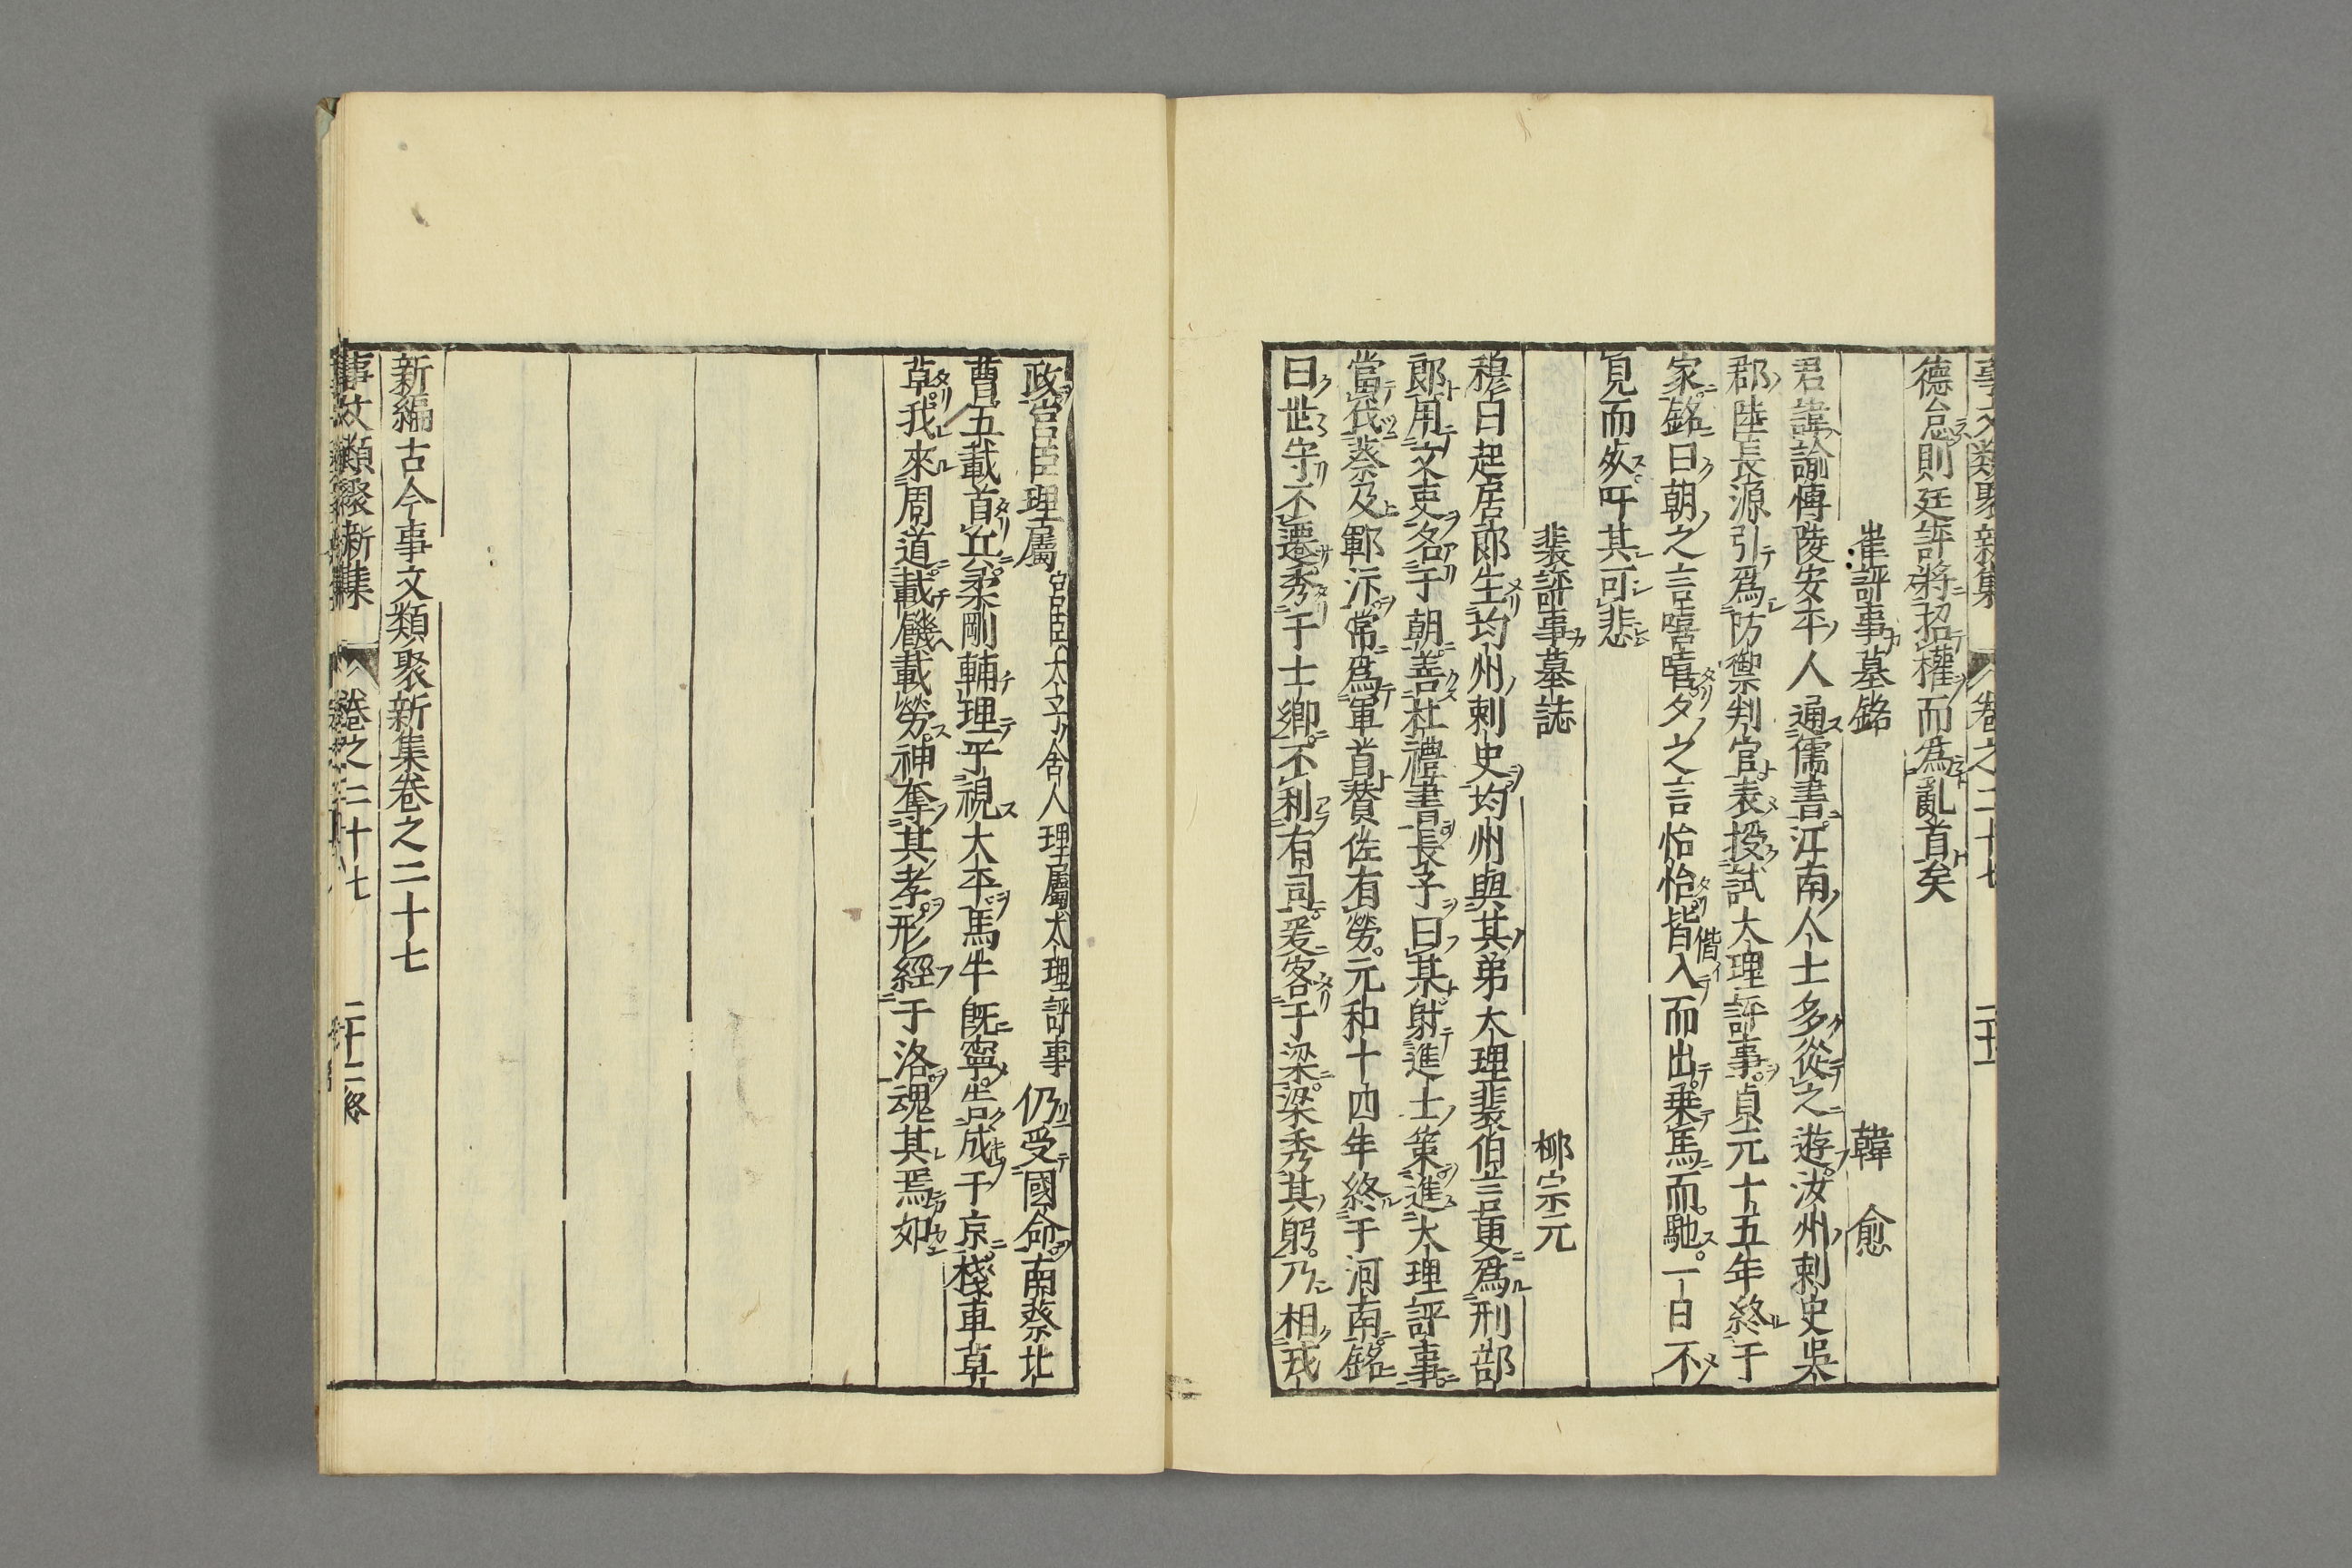 事文類聚新集 卷之二十七 二十二
德怠則廷評將招權而為亂首矣
崔評事墓銘 韓 愈
君諱諭愽陵安平人通儒書江南人士多從之遊汝州刺史吳
郡陸長源引為防禦判官表授試大理評事貞元十五年終于
家銘曰朝之言嘻嘻夕之言怡怡皆入而出乗馬而馳一日不
見而死吁其可悲
裴評事墓誌 柳宗元
穆曰起居郎生均州刺史均州與其弟大理裴伯言更為刑部
郎用文吏名于朝善杜禮書長子曰某射進士策進大理評事
當伐蔡及鄆汴常為軍首賛佐有勞元和十四年終于河南銘
曰世守不遷秀于士卿不利有司爰客于梁梁秀其躬乃相戎
政宮臣理屬宮臣太子舍人理屬大理評事仍受國命南蔡北
曹五載首兵柔剛輔理平視大本馬牛旣寧告成于京棧車草
草我來周道載饑載勞神奪其孝形經于洛魂其焉如
新編古今事文類聚新集卷之二十七
事文類聚新集 卷之二十七 二十二終